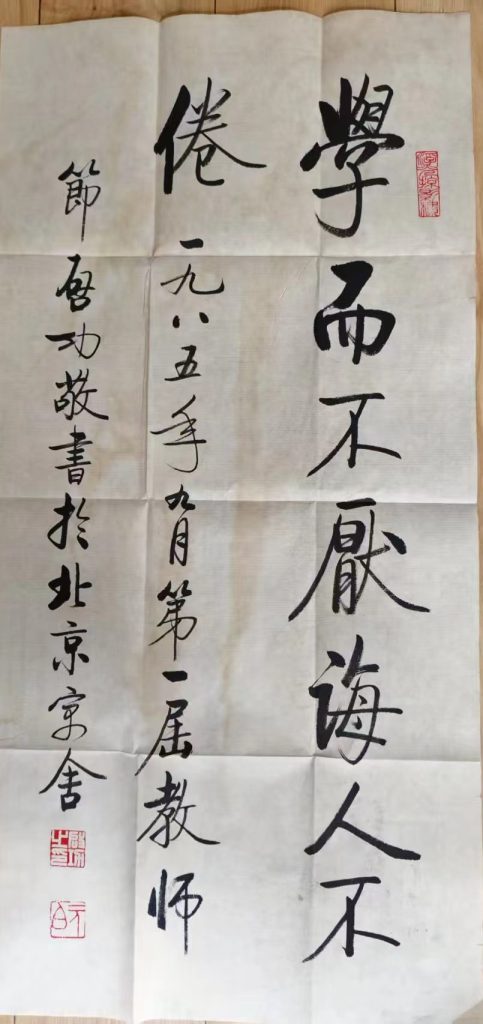 學而不厭誨人不
倦 一九八五年九月第一屆教师
節啓功敬書於北京寓舍
啟功之印
元白